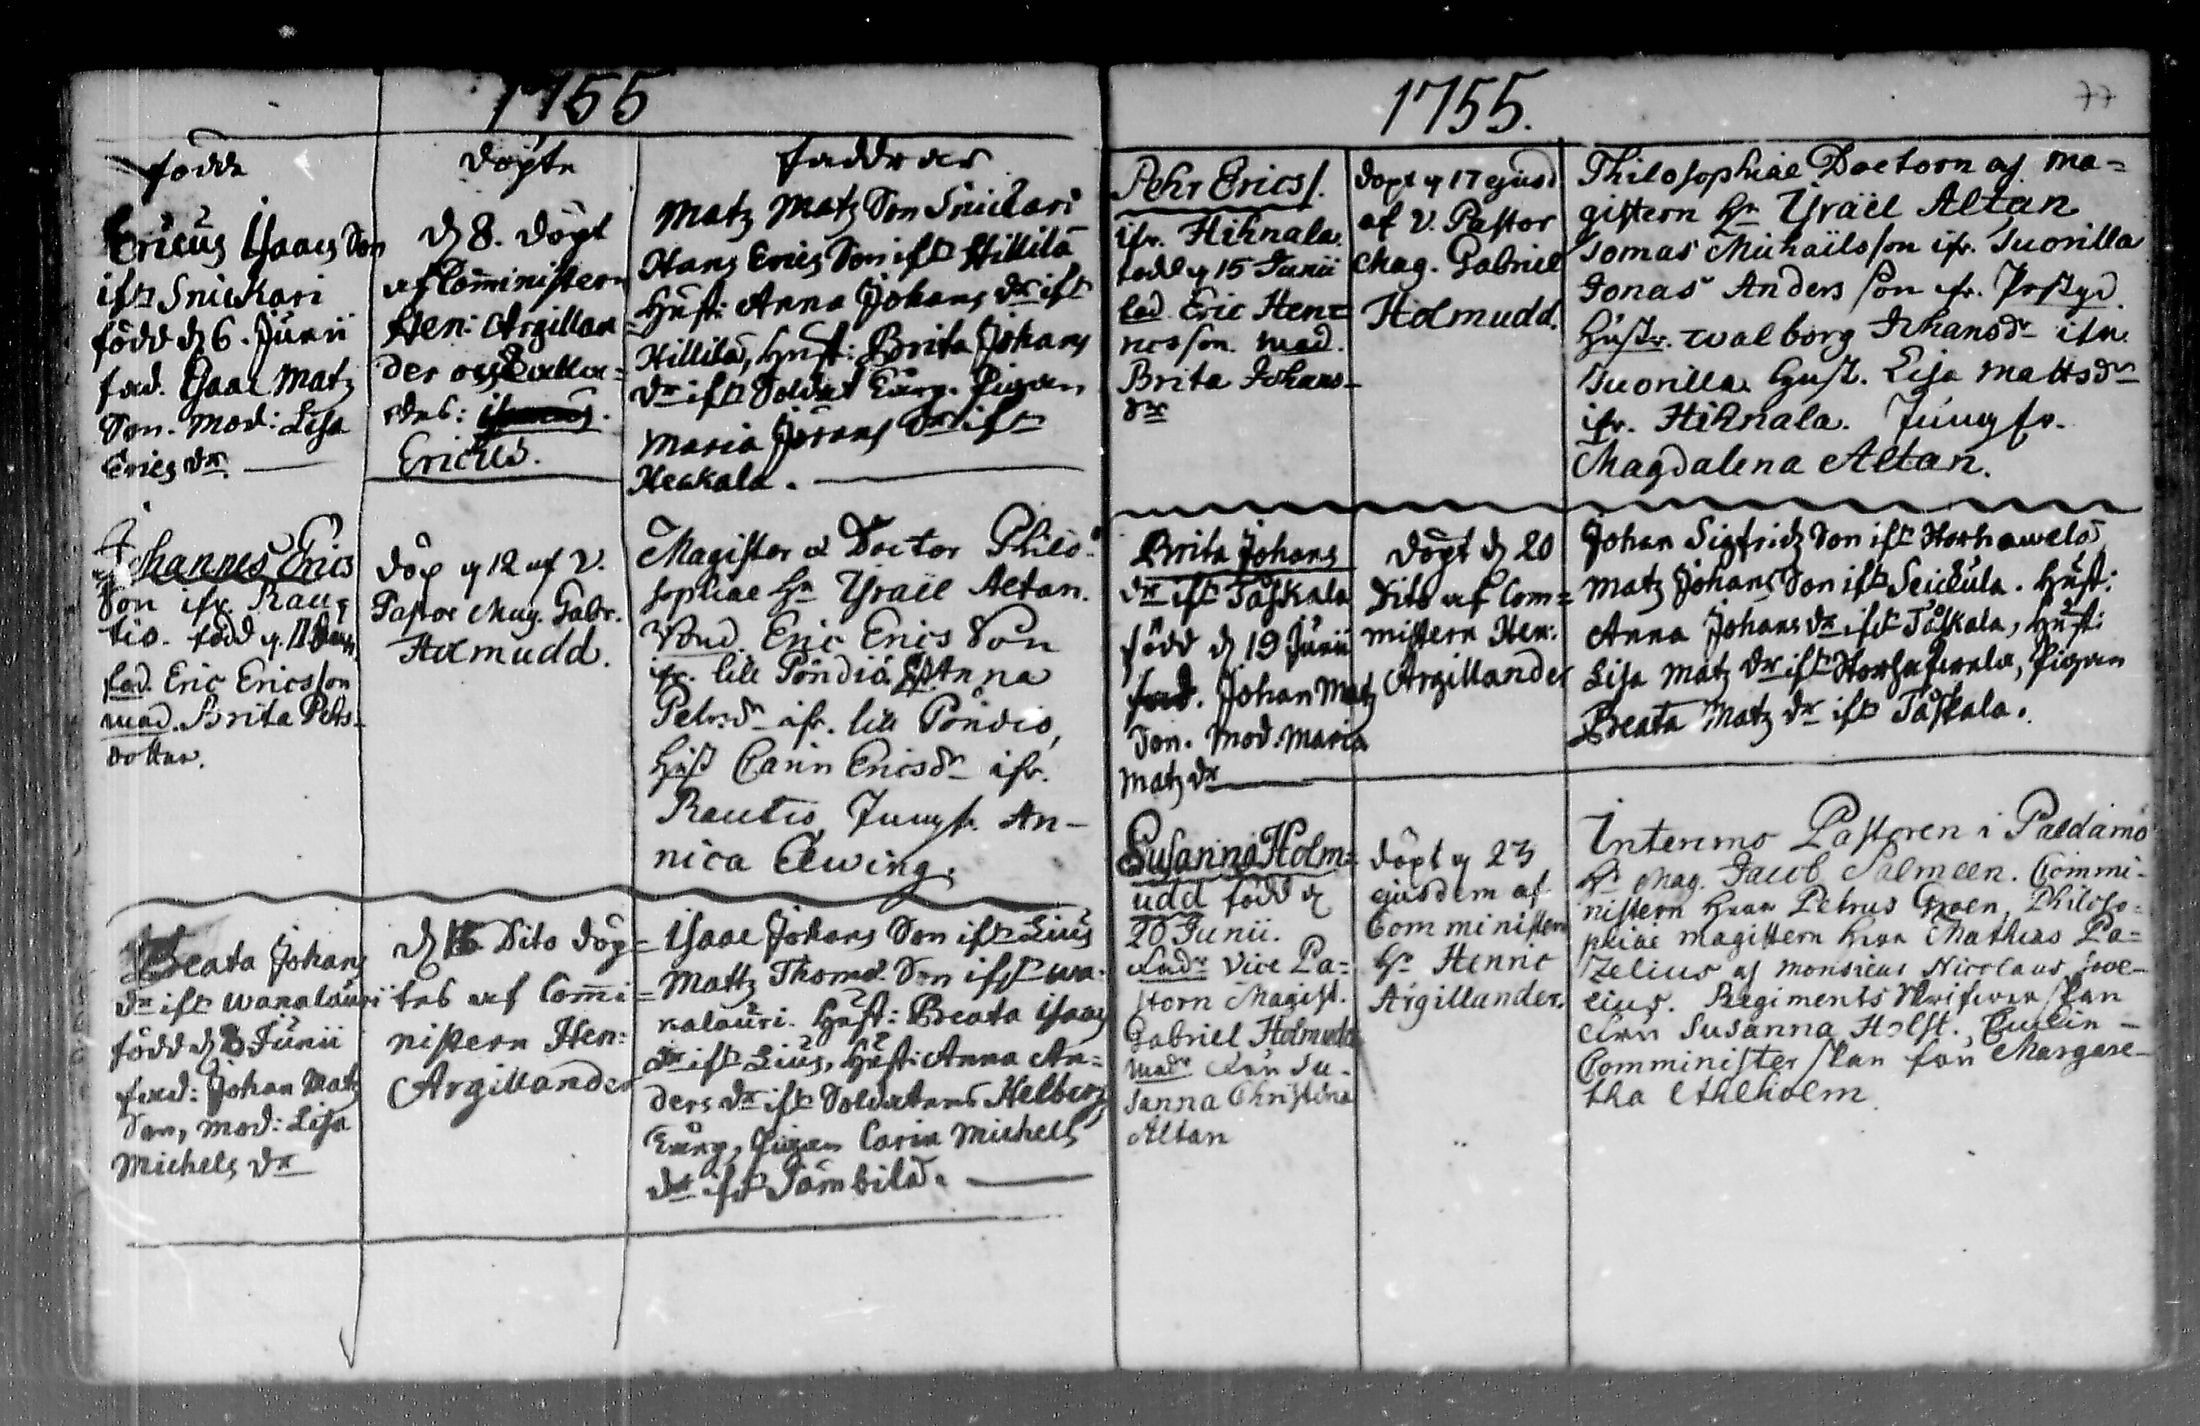 1755
födde
döpte
faddrar
Ericus Isaacs Son
ifr Snickari
född d 6. Junii
fad. Isaac Matz
Son. Mod: Lisa
Erics dr
d 8. döpt
af Comministern
Hen: Argillan
der och kalla=
des:
Ericus.
Matz Matz Son Snickari
Hans Erics Son ifr Hillilä
Hust: Anna Johans dr ifr
Hillilä, Hust: Brita Johans
dr ifr Soldat Pigan
Maria Jörans dr ifr
Heckala.
Johannes Erics
Son ifr. Rau=
tio. född d. 11
fad. Eric Ericsson
mod. Brita Pehrs
dotter.
Döp d 12 af V.
Pastor Mag. Gabr.
Holmudd.
Magister & Doctor Philo=
sophiae Hr Israël Altan.
Bond. Eric Erics Son
ifr. lill Pöndiö Anna
Pehrsdr ifr. lill Pöndiö,
Hust Carin Ericsdr ifr.
Rautio, Jungfr. An-
nica Elwing.
Beata Johans
dr ifr Wanalauri
född d Junii
fad: Johan Matz
Son, mod: Lisa
Michels dr
d Dito döp=
tes af Comi=
nistern Hen:
Argillander
Isaac Johans Son ifr Lius
Mattz Thomæ Son ifr wa=
nalauri. Hust: Beata Isaacs
dr ifr Lius, Hust: Anna An=
ders dr ifr Soldatens Helberg
Pigan Carin Michels
dr ifr Tömbilä.
1755.
77
Pehr Erics f.
ifr. Hihnala.
född d 15 Junii
fad. Eric Hen=
ricsson. Mod.
Brita Johans-
dr
Döpt d 17 ejusd
af V. Pastor
Mag. Gabriel
Holmudd.
Philosophiae Doctorn och Ma=
gistern Hr Israël Altan
Tomas Michaëlsson ifr. Tuorilla
Jonas Andersson ifr. 
Hustr. Walborg Johansdr ifr.
Tuorilla. Hust. Lisa Mattsdr
ifr. Hihnala. Jungfr.
Magdalena Altan.
Brita Johans
dr ifr Taskala
född d 19 Junii
fad. Johan Matz
Son. Mod. Maria
Matz dr
döpt d 20
Dito af Com=
mistern Hen:
Argillander
Johan Sigfridz Son ifr
Matz Johans Son ifr Seickula. Hust:
Anna Johans dr ifr Taskala, Hust:
Lisa Matz dr ifr Pigan
Beata Matz dr ifr Taskala.
Susanna Holm=
udd född d
20 Junii.
fadr Vice Pa=
storn Magist.
Gabriel Holmudd
modr Su-
sanna Christina
Altan
döpt d 23
ejusdem af
Comministern
Hr Henric
Argillander.
Interims Pastoren i Paldamo
Hr Mag. Jacob Salmeen. Commi-
nistern Herr Petrus Groen, Philoso-
phiae magistern Herr Mathias Pa=
zelius och Monsieur Nicolaus
lius. Regiments Skrifverskan
Susanna Holst.
Comministerskan fru Margare-
tha Ehlholm